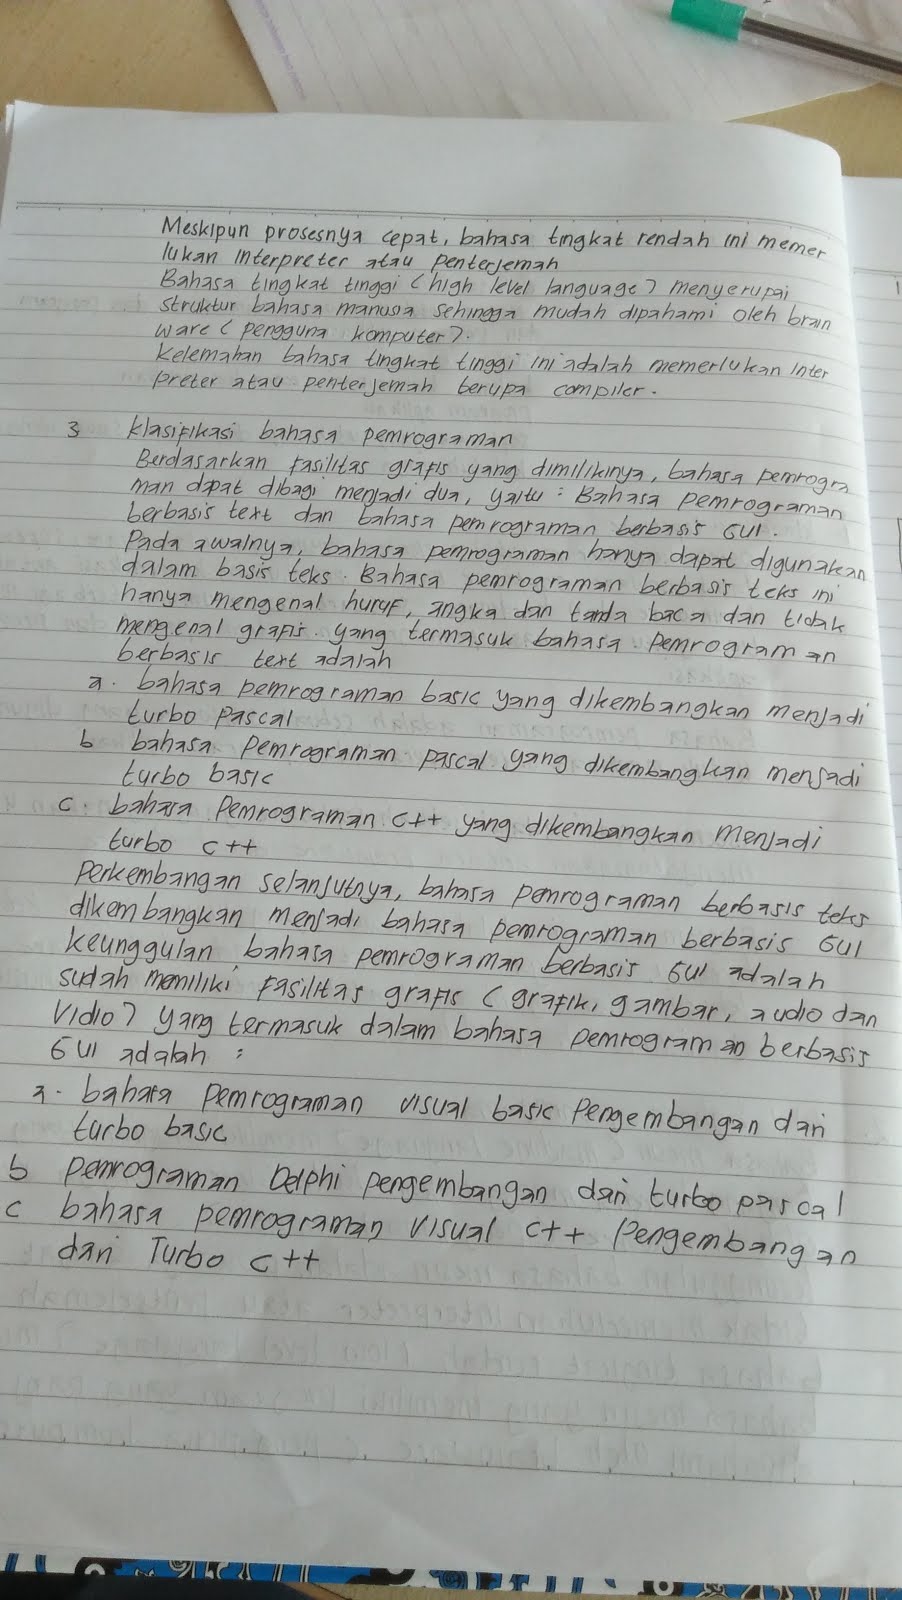 Meskipun prosesnya cepat, bahasa tingkat rendah ini memer
lukan interpreter atau penterjemah
Bahasa tingkat tinggi (high level language) menyerupai
struktur bahasa manusa sehingga mudah dipahami oleh brain
ware (pengguna komputer).
Kelemahan bahasa tingkat tinggi ini adalah memerlukan inter
preter atau penterjemah berupa compiler.
3 klasifikasi bahasa pemrograman
Berdasarkan fasilitas grafis yang dimilikinya, bahasa pemrogra
man dapat dibagi menjadi dua, yaitu : Bahasa pemrograman
berbasis text dan bahasa pemrograman berbasis GUI.
Pada awalnya, bahasa pemrograman hanya dapat digunakan
dalam basis teks. Bahasa pemrograman berbasis teks ini
hanya mengenal huruf, angka dan tanda baca dan tidak
mengenal grafis. yang termasuk bahasa pemrograman
berbasis text adalah
a. bahasa pemrograman basic yang dikembangkan menjadi
turbo pascal
b bahasa pemrograman pascal yang dikembangkan menjadi
turbo basic
c. bahasa pemrograman c++ yang dikembangkan menjadi
turbo c++
Perkembangan selanjutnya, bahasa pemrograman berbasis teks
dikembangkan menjadi bahasa pemrograman berbasis GUI
keunggulan bahasa pemrograman berbasis GUI adalah
sudah memiliki fasilitas grafis (grafik, gambar, audio dan
vidio) yang termasuk dalam bahasa pemrograman berbasis
GUI adalah :
a. bahasa pemrograman visual basic pengembangan dari
turbo basic
b pemrograman Delphi pengembangan dari turbo pascal
c bahasa pemrograman visual c++ pengembangan
dari Turbo c++